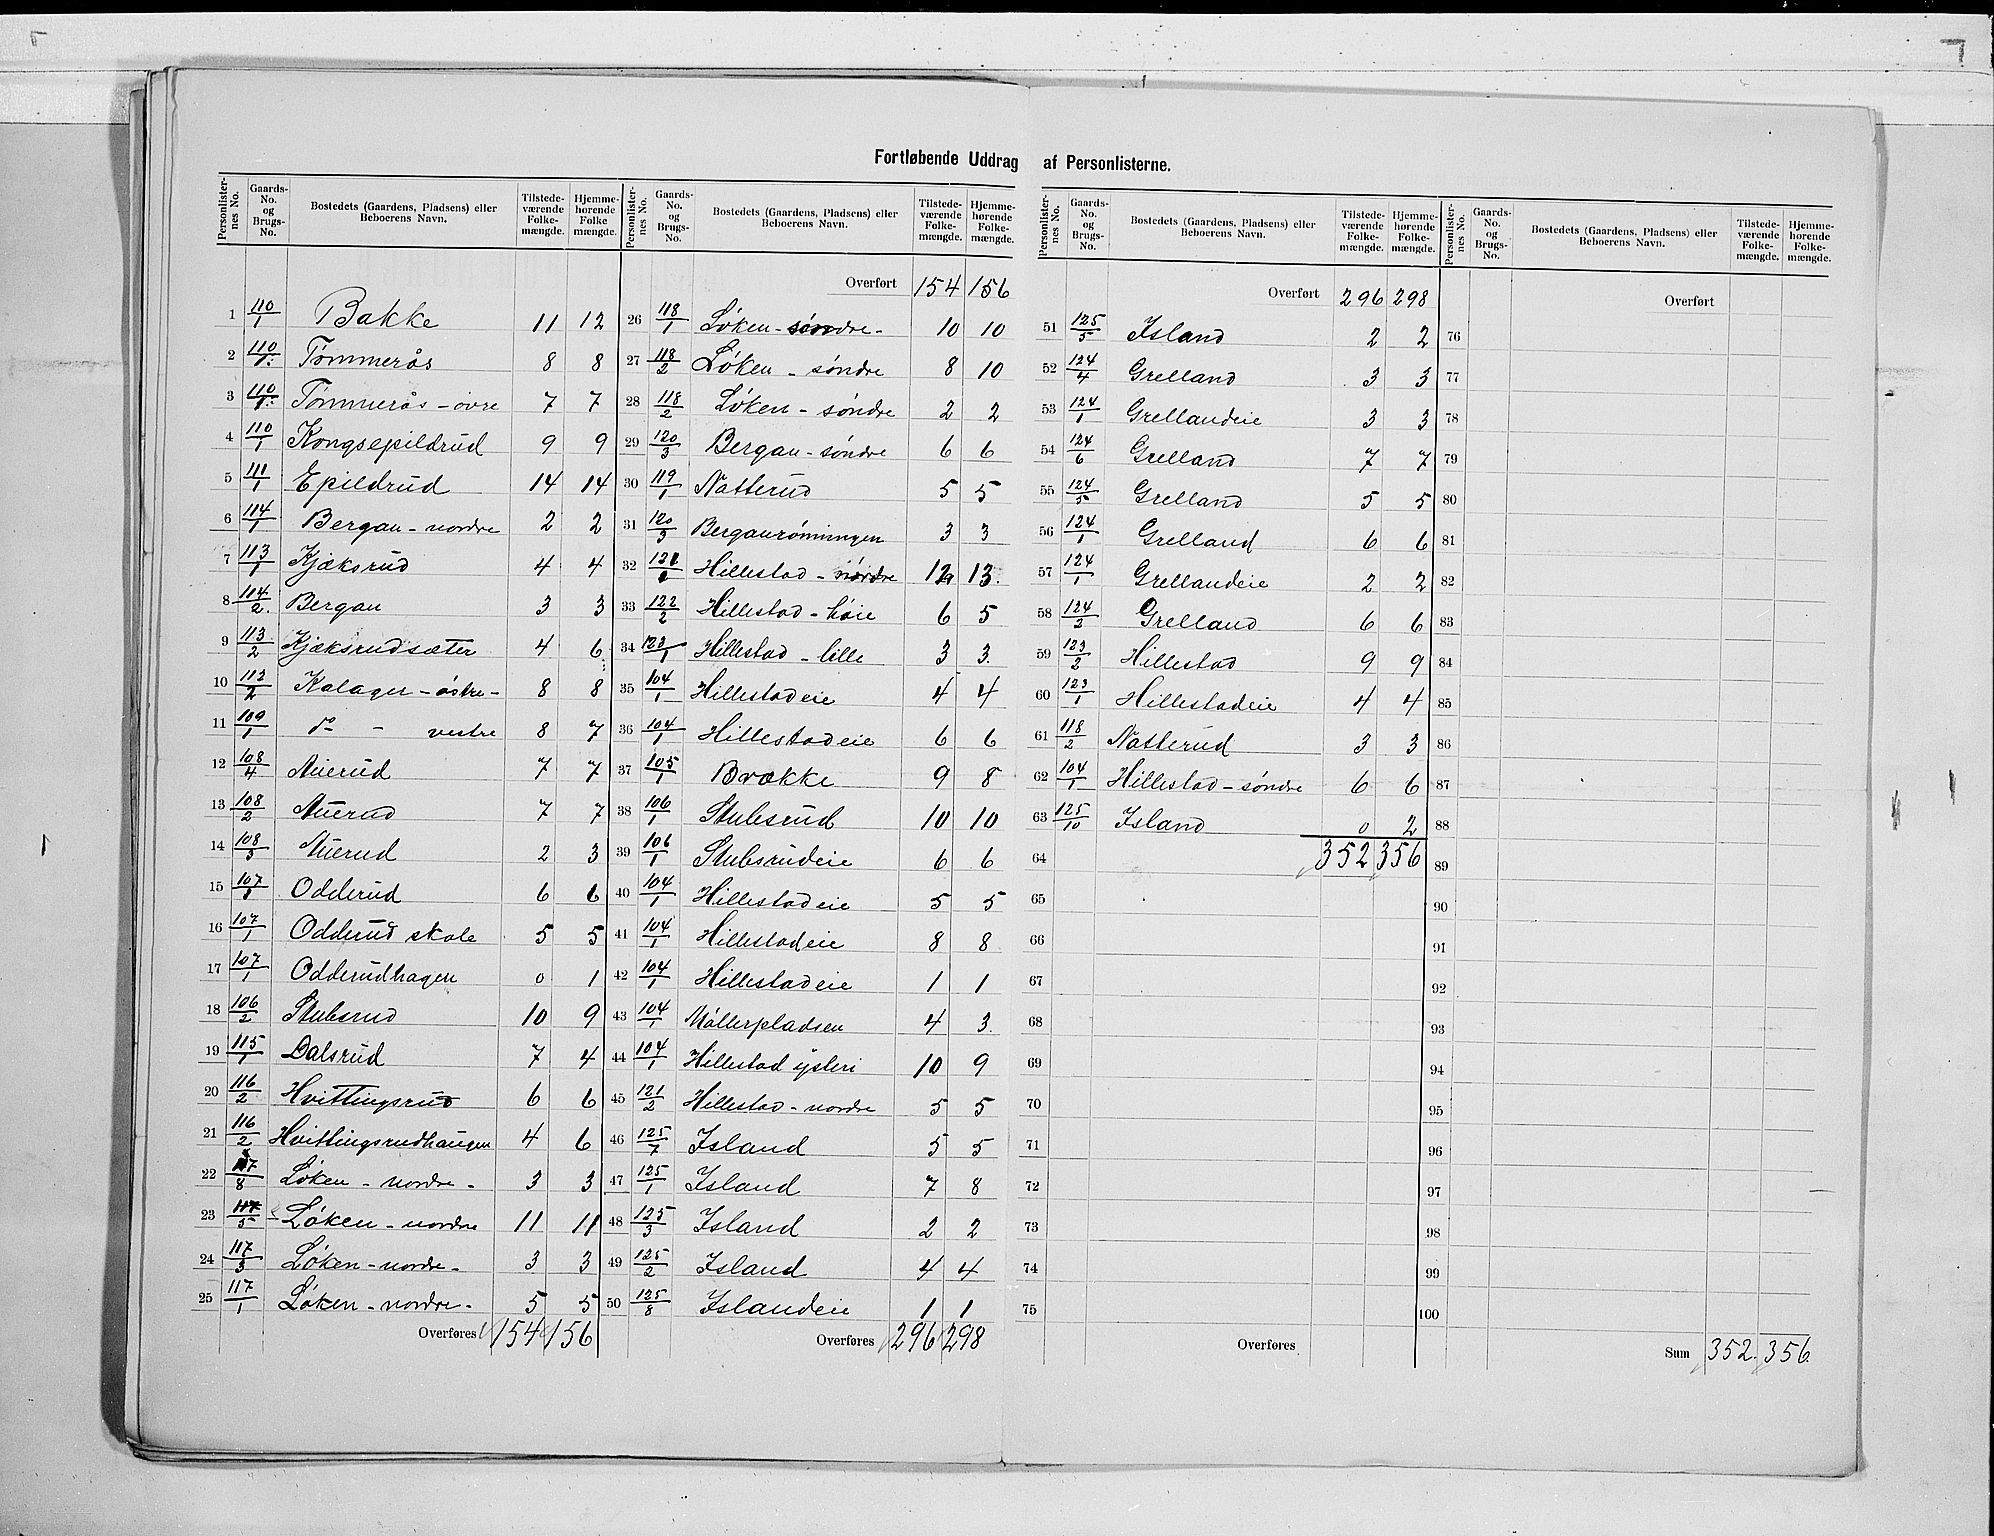 Fortløbende Uddrag af Personlisterne.
Personlister-nes No. | Gaards-No. og Brugs-No. | Bostedets (Gaardens, Pladsens) eller Beboerens Navn. | Tilstede-værende Folke-mængde. | Hjemme-hørende Folke mængde.
1 110/1 Bakke 11 12
2 110/1 Tömmerås 8 8
3 110/1 Tömmerås - övre 7 7
4 110/1 Kongsepildrud 9 9
5 111/1 Epildrud 14 14
6 114/1 Bergan - nordre 2 2
7 113/1 Kjæksrud 4 4
8 114/2 Bergan 3 3
9 113/2 Kjæksrudsæter 4 6
10 112/2 Kalager - östre - 8 8
11 109/1 do - vestre 8 7
12 108/4 Muerud 7 7
13 108/2 Muerud 7 7
14 108/3 Muerud 2 3
15 107/1 Odderud 6 6
16 107/1 Odderud skole 5 5
17 107/1 Odderudhagen 0 1
18 106/2 Stubsrud 10 9
19 115/1 Dalsrud 7 4
20 116/2 Hvittingsrud 6 6
21 116/2 Hvittingsrudhaugen 4 6
22 117/8 Løken - nordre - 3 3
23 117/5 Løken - nordre 11 11
24 117/3 Løken - nordre - 3 3
25 117/1 Løken - nordre - 5 5
Overføres 154 156
Personlister-nes No. | Gaards-No. og Brugs-No. | Bostedets (Gaardens, Pladsens) eller Beboerens Navn. | Tilstede-værende Folke-mængde. | Hjemme-hørende Folke-mængde.
Overført 154 156
26 118/1 Løken - søndre - 10 10
27 118/2 Løken - søndre 8 10
28 118/2 Løken - søndre 2 2
29 120/3 Bergan - søndre 6 6
30 119/1 Natterud 5 5
31 120/3 Berganrönningen 3 3
32 121/1 Hillestad - nordre 12 13
33 122/2 Hillestad - höie 6 5
34 123/1 Hillestad - lille 3 3
35 104/1 Hillestadeie 4 4
36 104/1 Hillestadeie 6 6
37 105/1 Brække 9 8
38 106/1 Stubsrud 10 10
39 106/1 Stubsrudeie 6 6
40 104/1 Hillestadeie 5 5
41 104/1 Hillestadeie 8 8
42 104/1 Hillestadeie 1 1
43 104/1 Möllerpladsen 4 3
44 104/1 Hillestad ysteri 10 9
45 121/2 Hillestad - nordre 5 5
46 125/7 Island 5 5
47 125/1 Island 7 8
48 125/3 Island 2 2
49 125/2 Island 4 4
50 125/8 Islandeie 1 1
Overføres 296 298
Personlister-nes No. | Gaards-No. og Brugs-No. | Bostedets (Gaardens, Pladsens) eller Beboerens Navn. | Tilstede-værende Folke-mængde. | Hjemme-hørende Folke-mængde.
Overført 296 298
51 125/5 Island 2 2
52 124/4 Grelland 3 3
53 124/1 Grellandeie 3 3
54 124/6 Grelland 7 7
55 124/5 Grelland 5 5
56 124/1 Grelland 6 6
57 124/1 Grellandeie 2 2
58 124/2 Grelland 6 6
59 123/2 Hillestad 9 9
60 123/1 Hillestadeie 4 4
61 118/2 Natterud 3 3
62 104/1 Hillestad - søndre 6 6
63 125/10 Island 0 2
64 352 356
65
66
67
68
69
70
71
72
73
74
75
Overføres
Personlister-nes No. | Gaards-No. og Brugs-No. | Bostedets (Gaardens, Pladsens) eller Beboerens Navn. | Tilstede-værende Folke-mængde. | Hjemme-hørende Folke-mængde.
Overført
76
77
78
79
80
81
82
83
84
85
86
87
88
89
90
91
92
93
94
95
96
97
98
99
100
Sum 352. 356.